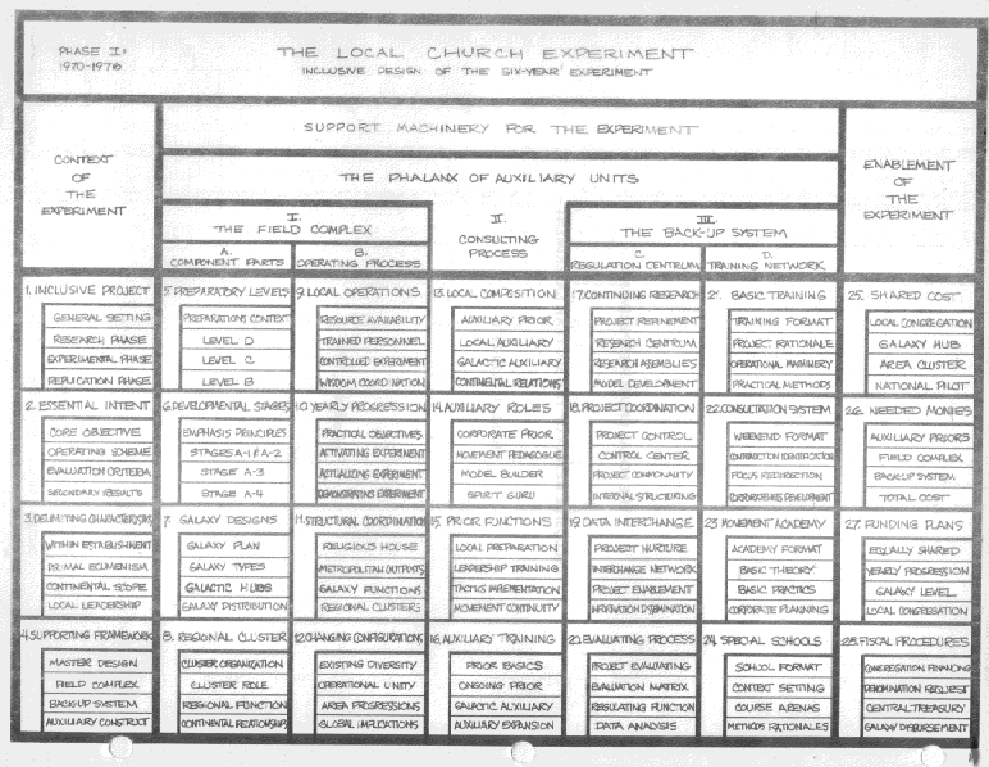 PHASE I:
1970-1976
THE LOCAL CHURCH EXPERIMENT
INCLUSIVE DESIGN OF THE SIX-YEAR EXPERIMENT
CONTEXT
OF
THE
EXPERIMENT
SUPPORT MACHINERY FOR THE EXPERIMENT
THE PHALANX OF AUXILIARY UNITS
I.
THE FIELD COMPLEX
A.
COMPONENT PARTS
B.
OPERATING PROCESS
II.
CONSULTING
PROCESS
III.
THE BACK-UP SYSTEM
C.
REGULATION CENTRUM
D.
TRAINING NETWORK
ENABLEMENT
OF
THE
EXPERIMENT
1. INCLUSIVE PROJECT
GENERAL SETTING
RESEARCH PHASE
EXPERIMENTAL PHASE
REPLICATION PHASE
5. PREPARATORY LEVELS
PREPARATIONS CONTEXT
LEVEL D
LEVEL C
LEVEL B
9. LOCAL OPERATIONS
RESOURCE AVAILABILITY
TRAINED PERSONNEL
CONTROLLED EXPERIMENT
WISDOM COORDINATION
13. LOCAL COMPOSITION
AUXILIARY PRIOR
LOCAL AUXILIARY
GALACTIC AUXILIARY
CONTINENTAL RELATIONS
17. CONTINUING RESEARCH
PROJECT REFINEMENT
RESEARCH CENTRUM
RESEARCH ASSEMBLIES
MODEL DEVELOPMENT
21. BASIC TRAINING
TRAINING FORMAT
PROJECT RATIONALE
OPERATIONAL MACHINERY
PRACTICAL METHODS
25. SHARED COST
LOCAL CONGREGATION
GALAXY HUB
AREA CLUSTER
NATIONAL PILOT
2. ESSENTIAL INTENT
CORE OBJECTIVE
OPERATING SCHEME
EVALUATION CRITERIA
SECONDARY RESULTS
6. DEVELOPMENTAL STAGES
EMPHASIS PRINCIPLES
STAGES A-1 & A-2
STAGE A-3
STAGE A-4
10. YEARLY PROGRESSION
PRACTICAL OBJECTIVES
ACTIVATING EXPERIMENT
ACTUALIZING EXPERIMENT
DEMONSTRATING EXPERIMENT
14. AUXILIARY ROLES
CORPORATE PRIOR
MOVEMENT PEDAGOGUE
MODEL BUILDER
SPIRIT GURU
18. PROJECT COORDINATION
PROJECT CONTROL
CONTROL CENTER
PROJECT COMMONALITY
INTERNAL STRUCTURING
22. CONSULTATION SYSTEM
WEEKEND FORMAT
CONTRADICTION IDENTIFICATION
FOCUS REDIRECTION
DEVELOPMENT
26. NEEDED MONIES
AUXILIARY PRIORS
FIELD COMPLEX
BACK-UP SYSTEM
TOTAL COST
3. DELIMITING CHARACTERISTICS
WITHIN ESTABLISHMENT
PRIMAL ECUMENISM
CONTINENTAL SCOPE
LOCAL LEADERSHIP
7. GALAXY DESIGNS
GALAXY PLAN
GALAXY TYPES
GALACTIC HUBS
GALAXY DISTRIBUTION
11. STRUCTURAL COORDINATION
RELIGIOUS HOUSE
METROPOLITAN OUTPOSTS
GALAXY FUNCTIONS
REGIONAL CLUSTERS
15. PRIOR FUNCTIONS
LOCAL PREPARATION
LEADERSHIP TRAINING
TACTICS IMPLEMENTATION
MOVEMENT CONTINUITY
19. DATA INTERCHANGE
PROJECT NURTURE
INTERCHANGE NETWORK
PROJECT ENABLEMENT
INFORMATION DISSEMINATION
23. MOVEMENT ACADEMY
ACADEMY FORMAT
BASIC THEORY
BASIC PRACTICS
CORPORATE PLANNING
27. FUNDING PLANS
EQUALLY SHARED
YEARLY PROGRESSION
GALAXY LEVEL
LOCAL CONGREGATION
4. SUPPORTING FRAMEWORK
MASTER DESIGN
FIELD COMPLEX
BACK-UP SYSTEM
AUXILIARY CONSTRUCT
8. REGIONAL CLUSTER
CLUSTER ORGANIZATION
CLUSTER ROLE
REGIONAL FUNCTION
CONTINENTAL RELATIONSHIPS
12. CHANGING CONFIGURATIONS
EXISTING DIVERSITY
OPERATIONAL UNITY
AREA PROGRESSIONS
GLOBAL IMPLICATIONS
16. AUXILIARY TRAINING
PRIOR BASICS
ONGOING PRIOR
GALACTIC AUXILIARY
AUXILIARY EXPANSION
20. EVALUATING PROCESS
PROJECT EVALUATING
EVALUATION MATRIX
REGULATING FUNCTION
DATA ANALYSIS
24. SPECIAL SCHOOLS
SCHOOL FORMAT
CONTEXT SETTING
COURSE ARENAS
METHODS RATIONALES
28. FISCAL PROCEDURES
CONGREGATION FINANCING
DENOMINATION REQUEST
CENTRAL TREASURY
GALAXY DISBURSEMENT